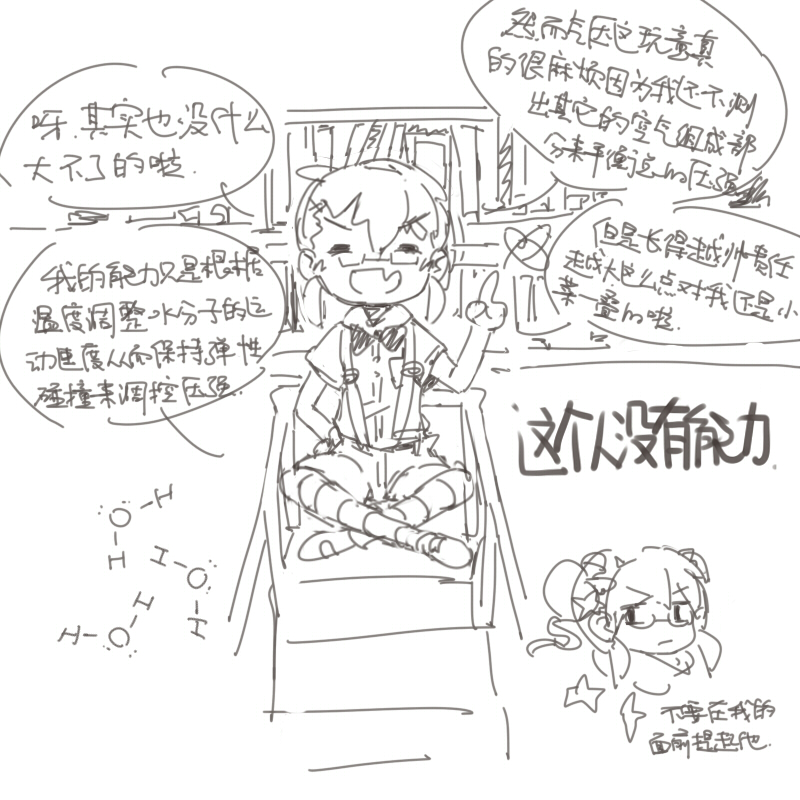 呀.其实也没什么
大不了的啦.
我的能力只是根据
温度调整水分子的运
动速度从而保持弹性
碰撞来调控压强.
然而卢因这玩意真
的很麻烦因为我还不测
出其它的空气组成部
分来平衡这的压强
但是长得越帅责任
越大这么点对我还是小
菜一叠的啦.
这个人没有能力.
H
O
H
H
O
H
H
O
H
不要在我的
面前提起他.